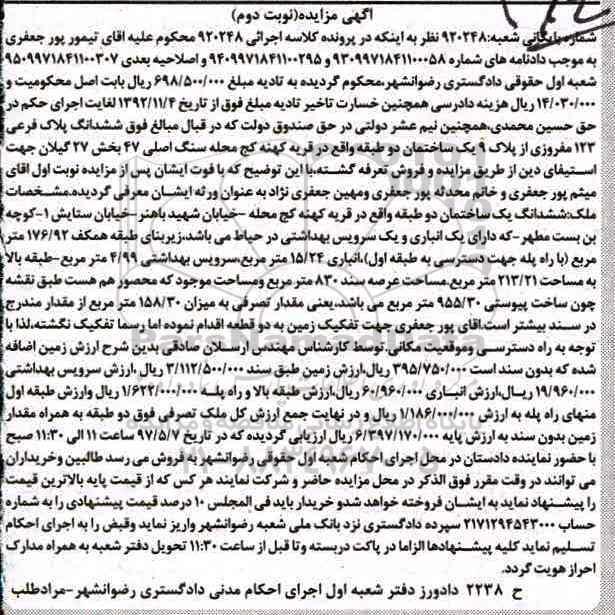 آگهی مزایده(نوبت دوم)
شماره بایگانی شعبه:۹۲۰۲۴۸ نظر به اینکه در پرونده کلاسه اجرائی ۹۲۰۲۴۸ محکوم علیه اقای تیمور پور جعفری
به موجب دادنامه های شماره ۹۳۰۹۹۷۱۸۴۱۱۰۰۰۵۸ و ۹۴۰۹۹۷۱۸۴۱۱۰۰۲۹۵ و اصلاحیه بعدی ۹۵۰۹۹۷۱۸۴۱۱۰۰۳۰۷
شعبه اول حقوقی دادگستری رضوانشهر،محکوم گردیده به تادیه مبلغ ۶۹۸/۵۰۰/۰۰۰ ریال بابت اصل محکومیت و
۱۴/۰۳۰/۰۰۰ ریال هزینه دادرسی همچنین خسارت تاخیر تادیه مبلغ فوق از تاریخ ۱۳۹۲/۱۱/۴ لغایت اجرای حکم در
حق حسین محمدی،همچنین نیم عشر دولتی در حق صندوق دولت که در قبال مبالغ فوق ششدانگ پلاک فرعی
۱۲۳ مفروزی از پلاک ۹ یک ساختمان دو طبقه واقع در قریه کهنه کج محله سنگ اصلی ۴۷ بخش ۲۷ گیلان جهت
استیفای دین از طریق مزایده و فروش تعرفه گشته.با این توضیح که با فوت ایشان پس از مزایده نوبت اول اقای
میثم پور جعفری و خانم محدثه پور جعفری ومهین جعفری نژاد به عنوان ورثه ایشان معرفی گردیده.مشخصات
ملک:ششدانگ یک ساختمان دو طبقه واقع در قریه کهنه کج محله -خیابان شهید باهنر-خیابان ستایش ۱-کوچه
بن بست مطهر-که دارای یک انباری و یک سرویس بهداشتی در حیاط می باشد،زیربنای طبقه همکف ۱۷۶/۹۲ متر
مربع (با راه پله جهت دسترسی به طبقه اول)،انباری ۱۵/۲۴ متر مربع،سرویس بهداشتی ۴/۹۹ متر مربع-طبقه بالا
به مساحت ۲۱۳/۲۱ متر مربع.مساحت عرصه سند ۸۳۰ متر مربع ومساحت موجود که محصور هم هست طبق نقشه
چون ساخت پیوستی ۹۵۵/۳۰ متر مربع می باشد،یعنی مقدار تصرفی به میزان ۱۵۸/۳۰ متر مربع از مقدار مندرج
در سند بیشتر است.اقای پور جعفری جهت تفکیک زمین به دو قطعه اقدام نموده اما رسما تفکیک نگشته،لذا با
توجه به راه دسترسی وموقعیت مکانی.توسط کارشناس مهندس ارسلان صادقی بدین شرح ارزش زمین اضافه
شده که بدون سند است ۳۹۵/۷۵۰/۰۰۰ ریال،ارزش زمین طبق سند ۳/۱۱۲/۵۰۰/۰۰۰ ریال ،ارزش سرویس بهداشتی
۱۹/۹۶۰/۰۰۰ ریال،ارزش انباری ۶۰/۹۶۰/۰۰۰ ریال،ارزش طبقه بالا و راه پله ۱/۶۲۲/۰۰۰/۰۰۰ ریال وارزش طبقه اول
منهای راه پله به ارزش ۱/۱۸۶/۰۰۰/۰۰۰ ریال و در نهایت جمع ارزش کل ملک تصرفی فوق دو طبقه به همراه مقدار
زمین بدون سند به ارزش پایه ۶/۳۹۷/۱۷۰/۰۰۰ ریال ارزیابی گردیده که در تاریخ ۹۷/۵/۷ ساعت ۱۱ الی ۱۱:۳۰ صبح
با حضور نماینده دادستان در محل اجرای احکام شعبه اول حقوقی رضوانشهر به فروش می رسد طالبین وخریداران
می توانند در وقت مقرر فوق الذکر در محل مزایده حاضر و شرکت نمایند هر کس که از قیمت پایه بالاترین قیمت
را پیشنهاد نماید به ایشان فروخته خواهد شدو خریدار باید فی المجلس ۱۰ درصد قیمت پیشنهادی را به شماره
حساب ۲۱۷۱۲۹۴۵۴۳۰۰۰ سپرده دادگستری نزد بانک ملی شعبه رضوانشهر واریز نماید وقبض را به اجرای احکام
تسلیم نماید کلیه پیشنهادها الزاما در پاکت دربسته وتا قبل از ساعت ۱۱:۳۰ تحویل دفتر شعبه به همراه مدارک
احراز هویت گردد.
ح ۲۲۳۸ دادورز دفتر شعبه اول اجرای احکام مدنی دادگستری رضوانشهر-مرادطلب